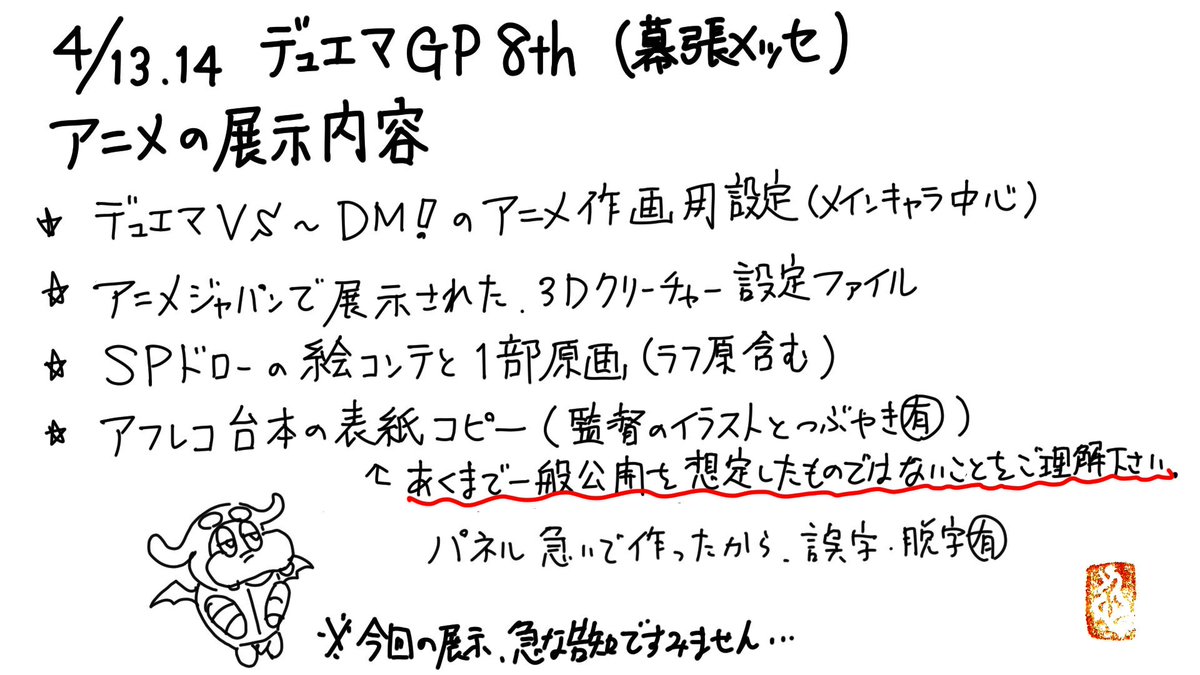 4/13.14 デュエマGP 8th (幕張メッセ)
アニメの展示内容
☆ デュエマVS〜DM!のアニメ作画用設定(メインキャラ中心)
☆ アニメジャパンで展示された、3Dクリーチャー設定ファイル
☆ SPドローの絵コンテと1部原画(ラフ原含む)
☆ アフレコ台本の表紙コピー(監督のイラストとつぶやき㊒)
↖ あくまで一般公開を想定したものではないことをご理解下さい。
パネル急いで作ったから、誤字・脱字㊒
※今回の展示、急な告知ですみません…